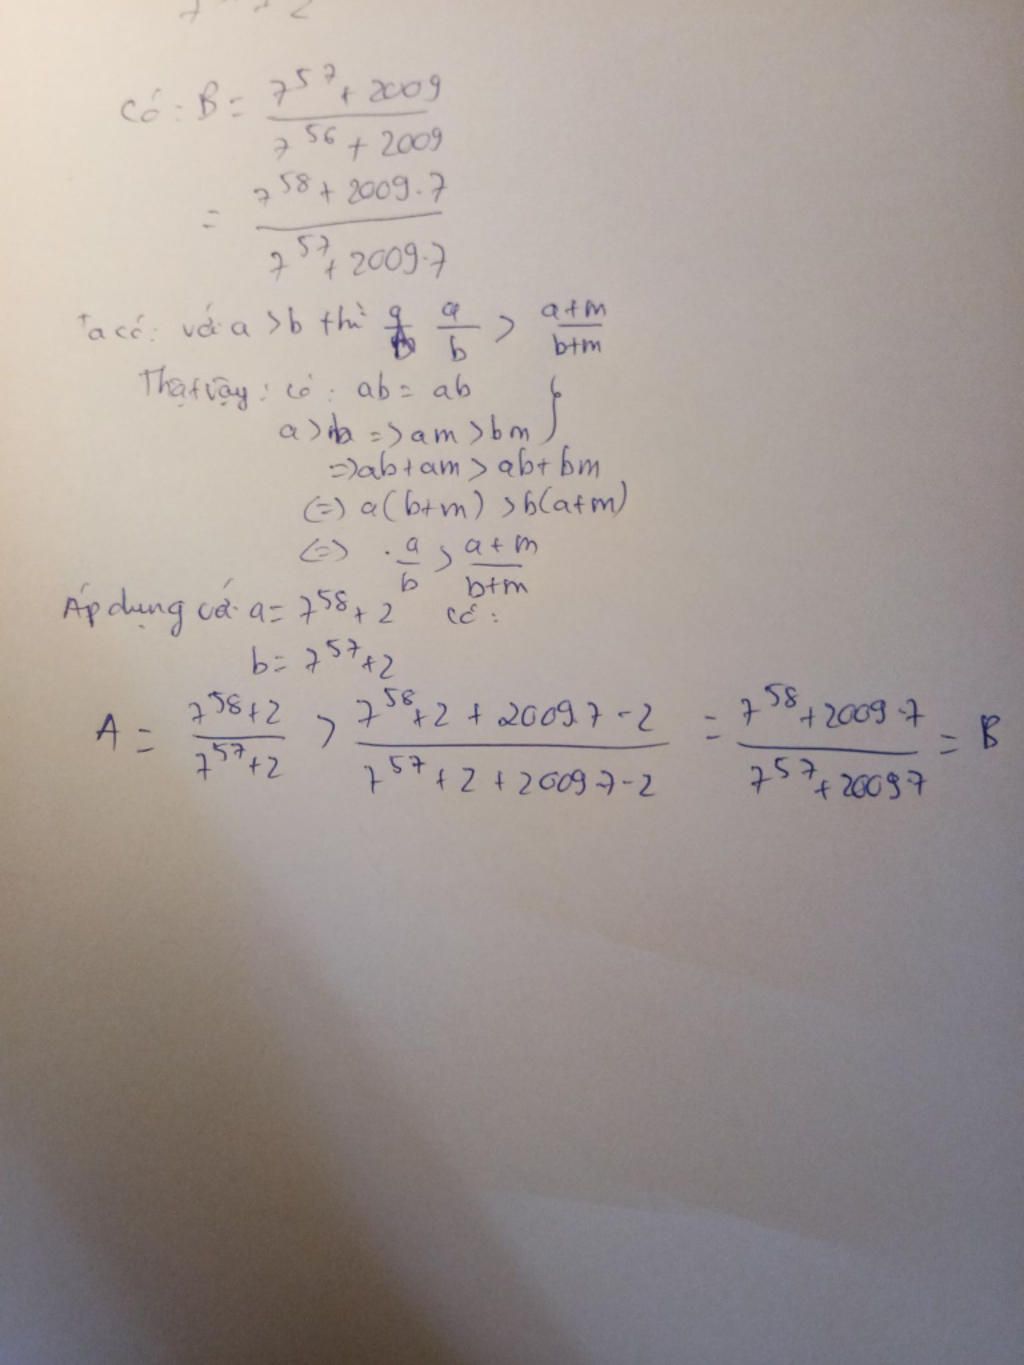 Có: B = 7^57 + 2009
7^56 + 2009
= 7^58 + 2009.7
7^57 + 2009.7
Ta có: với a > b thì a/b > a+m/b+m
Thật vậy: có: ab = ab
a > b => am > bm }
=> ab + am > ab + bm
(=) a(b+m) > b(a+m)
(=> . a/b > a+m/b+m
Áp dụng với a = 7^58 + 2 có:
b = 7^57 + 2
A = 7^58+2/7^57+2 > 7^58+2+2009.7-2/7^57+2+2009.7-2 = 7^58+2009.7/7^57+2009.7 = B